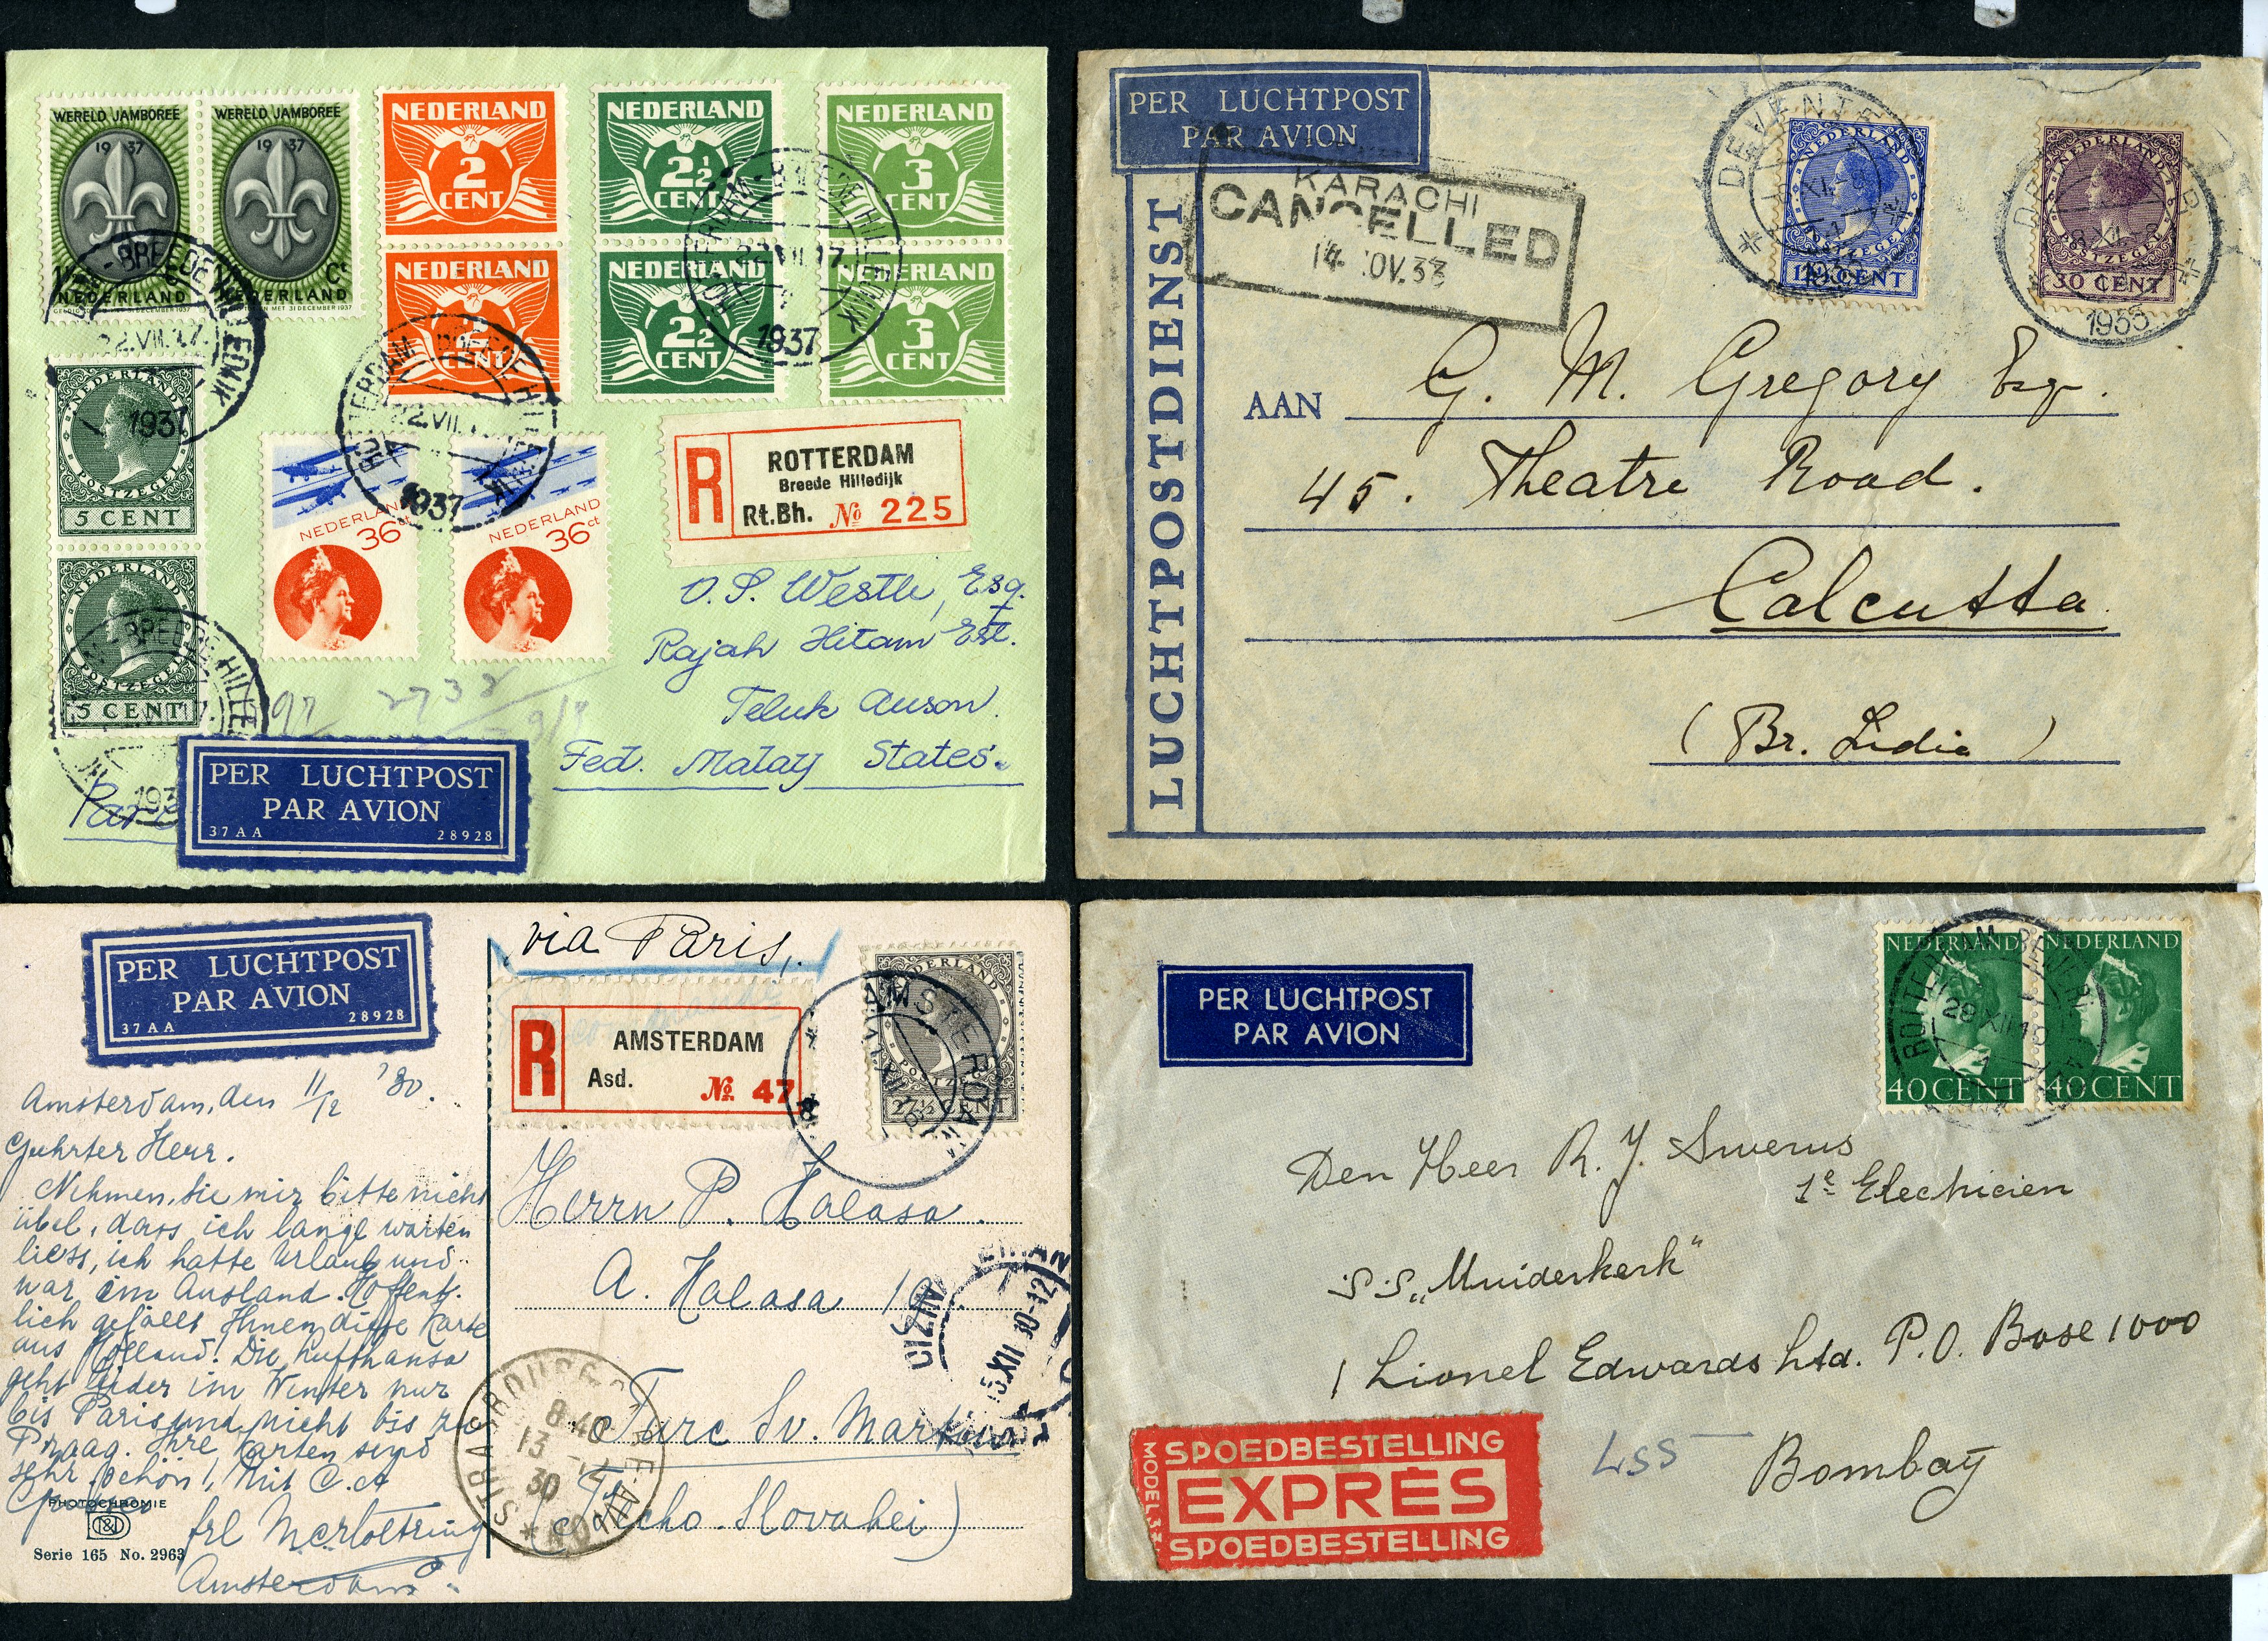 WERELD JAMBOREE
1937
NEDERLAND
WERELD JAMBOREE
1937
NEDERLAND
NEDERLAND
2
CENT
NEDERLAND
2
CENT
NEDERLAND
2½
CENT
NEDERLAND
2½
CENT
NEDERLAND
3
CENT
NEDERLAND
3
CENT
ROTTERDAM-BREEDE HILLEDIJK
22.VII.17
1937
NEDERLAND
POSTZEGEL
5 CENT
NEDERLAND
POSTZEGEL
5 CENT
NEDERLAND
36ct
NEDERLAND
36ct
R
ROTTERDAM
Breede Hilledijk
Rt.Bh. № 225
Rajah Hitam Est.
Teluk Anson.
Fed. Malay States.
PER LUCHTPOST
PAR AVION
37AA 28928
PER LUCHTPOST
PAR AVION
LUCHTPOSTDIENST
KARACHI
CANCELLED
DEVENTER
NEDERLAND
POSTZEGEL
NEDERLAND
POSTZEGEL
30 CENT
1933
AAN G. M. Gregory Esq.
45. Theatre Road.
Calcutta
(Br. India)
PER LUCHTPOST
PAR AVION
37AA 28928
via Paris,
R
AMSTERDAM
Asd. № 47
NEDERLAND
POSTZEGEL
27½ CENT
AMSTERDAM
Amsterdam, den 11/12 '30.
Geehrter Herr.
Nehmen Sie mir bitte nicht
übel, dass ich lange warten
liess, ich hatte Urlaub und
war im Ausland. Hoffent-
lich gefällt Ihnen diese Karte
aus Holland! Die Lufthansa
geht leider im Winter nur
bis Paris und nicht bis zu
Praag. Ihre Karten sind
sehr schön! Mit
PHOTOCHROMIE
Serie 165 No. 2963
Amsterdam
Herrn P. Halasa.
A. Halasa
Turc Sv. Martin
(Tschecho Slovakei)
STRASBOURG
8-40
13 -12
30
AVION
PER LUCHTPOST
PAR AVION
NEDERLAND
40 CENT
NEDERLAND
40 CENT
28 XII 18
Den Heer R. J. Swerus
1e Electricien
S.S. „Muiderkerk"
/ Lionel Edwards Ltd. P.O. Bose 1000
Bombay
MODEL
SPOEDBESTELLING
EXPRÈS
SPOEDBESTELLING